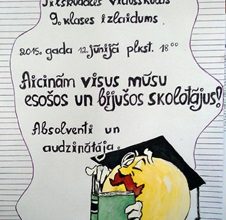 9. klases izlaidums
2015. gada 12. jūnijā plkst. 18 00
Aicinām visus mūsu
esošos un bijušos skolotājus!
Absolventi un
audzinātāja.